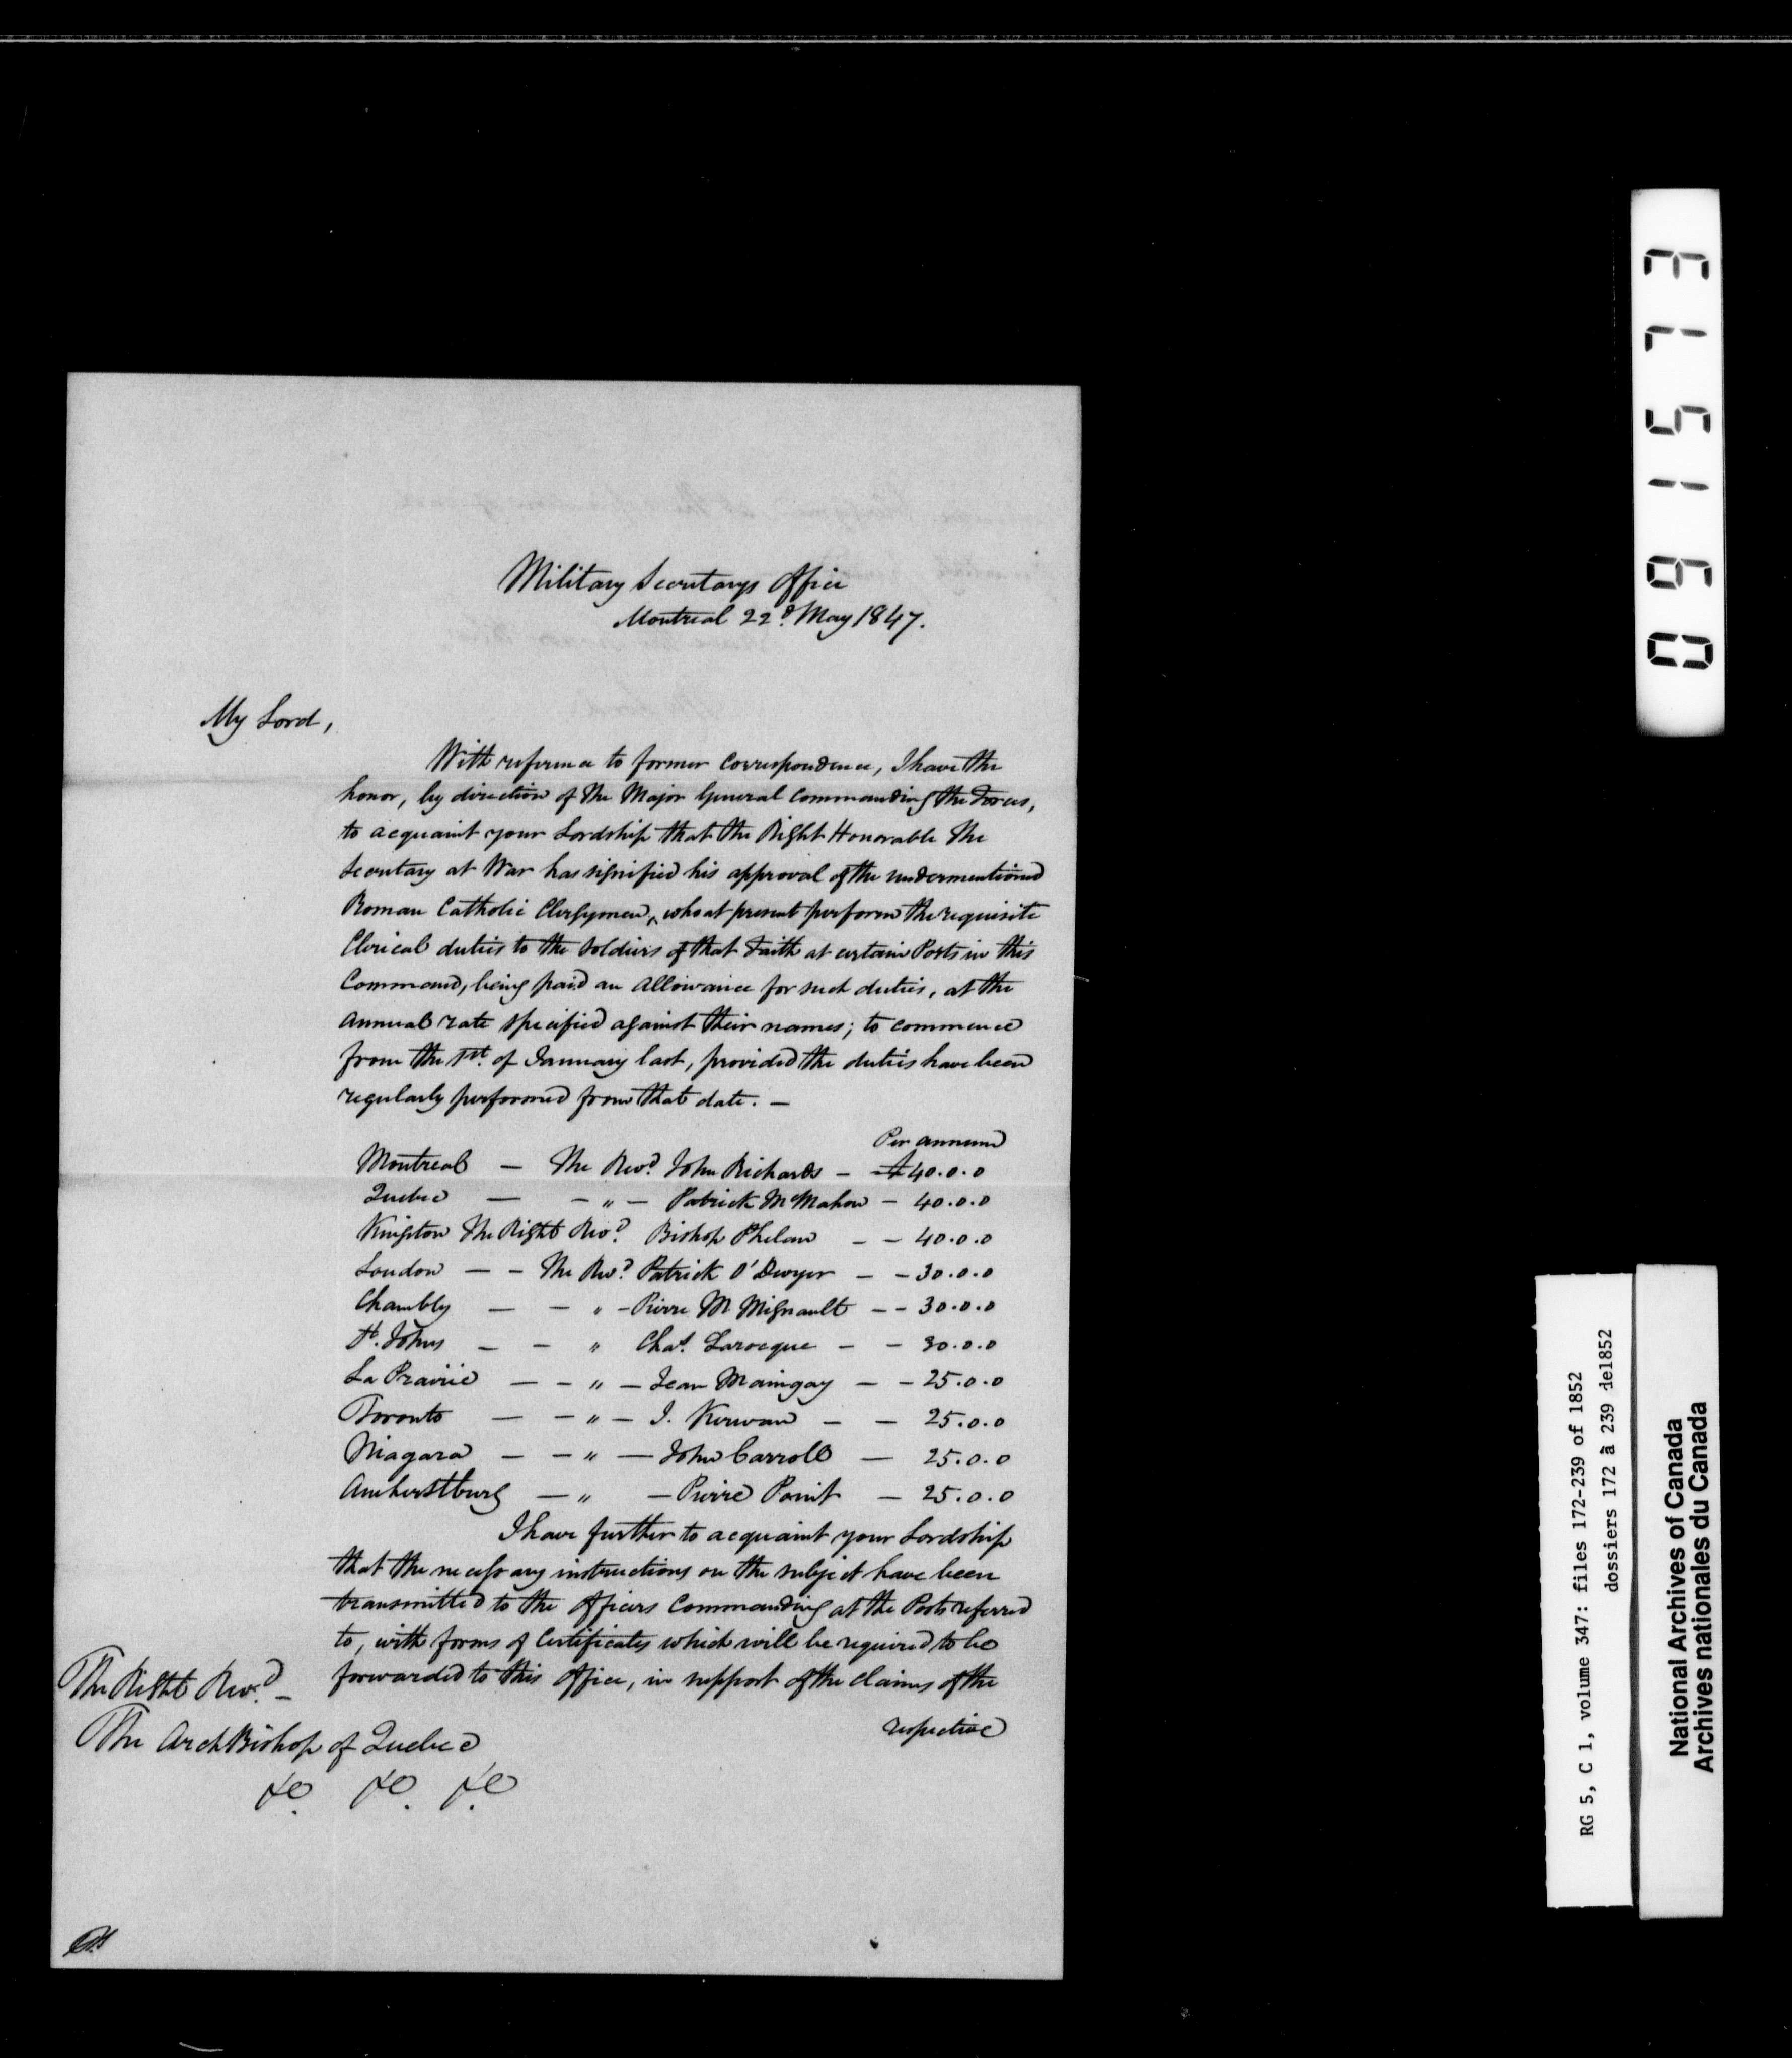 Military Secretarys Office
Montreal 22d. May 1847.
My Lord,
With reference to former correspondence, I have the
honor, by direction of the Major General Commanding the Forces,
to acquaint your Lordship that the Right Honorable the
Secretary at War has signified his approval of the undermentioned
Roman Catholic Clergymen, who at present perform the requisite
Clerical duties to the Soldiers of that Faith at certain Posts in this
Command, being paid an allowance for such duties, at the
annual rate specified against their names; to commence
from the 1st. of January last, provided the duties have been
regularly performed from that date. —
Per annum
Montreal — The Revd. John Richards — £40.0.0
Quebec — — " — Patrick McMahon — 40.0.0
Kingston The Right Revd. Bishop Phelan — — 40.0.0
London — — The Revd. Patrick O'Dwyer — — 30.0.0
Chambly — — " — Pierre M Mignault — — 30.0.0
St. Johns — — " Chas. Larocque — — 30.0.0
La Prairie — — " — Jean Maingay — — 25.0.0
Toronto — — " — J. Kerwan — — 25.0.0
Niagara — — " — John Carroll — 25.0.0
Amherstburg — " — Pierre Point — 25.0.0
I have further to acquaint your Lordship
that the necessary instructions on the subject have been
transmitted to the Officers Commanding at the Posts referred
to, with forms of Certificates which will be required to be
forwarded to this Office, in support of the claims of the
respective
The Right Revd. —
The ArchBishop of Quebec
&c. &c. &c.
091573
RG 5, C 1, volume 347: files 172-239 of 1852
dossiers 172 à 239 de1852
National Archives of Canada
Archives nationales du Canada